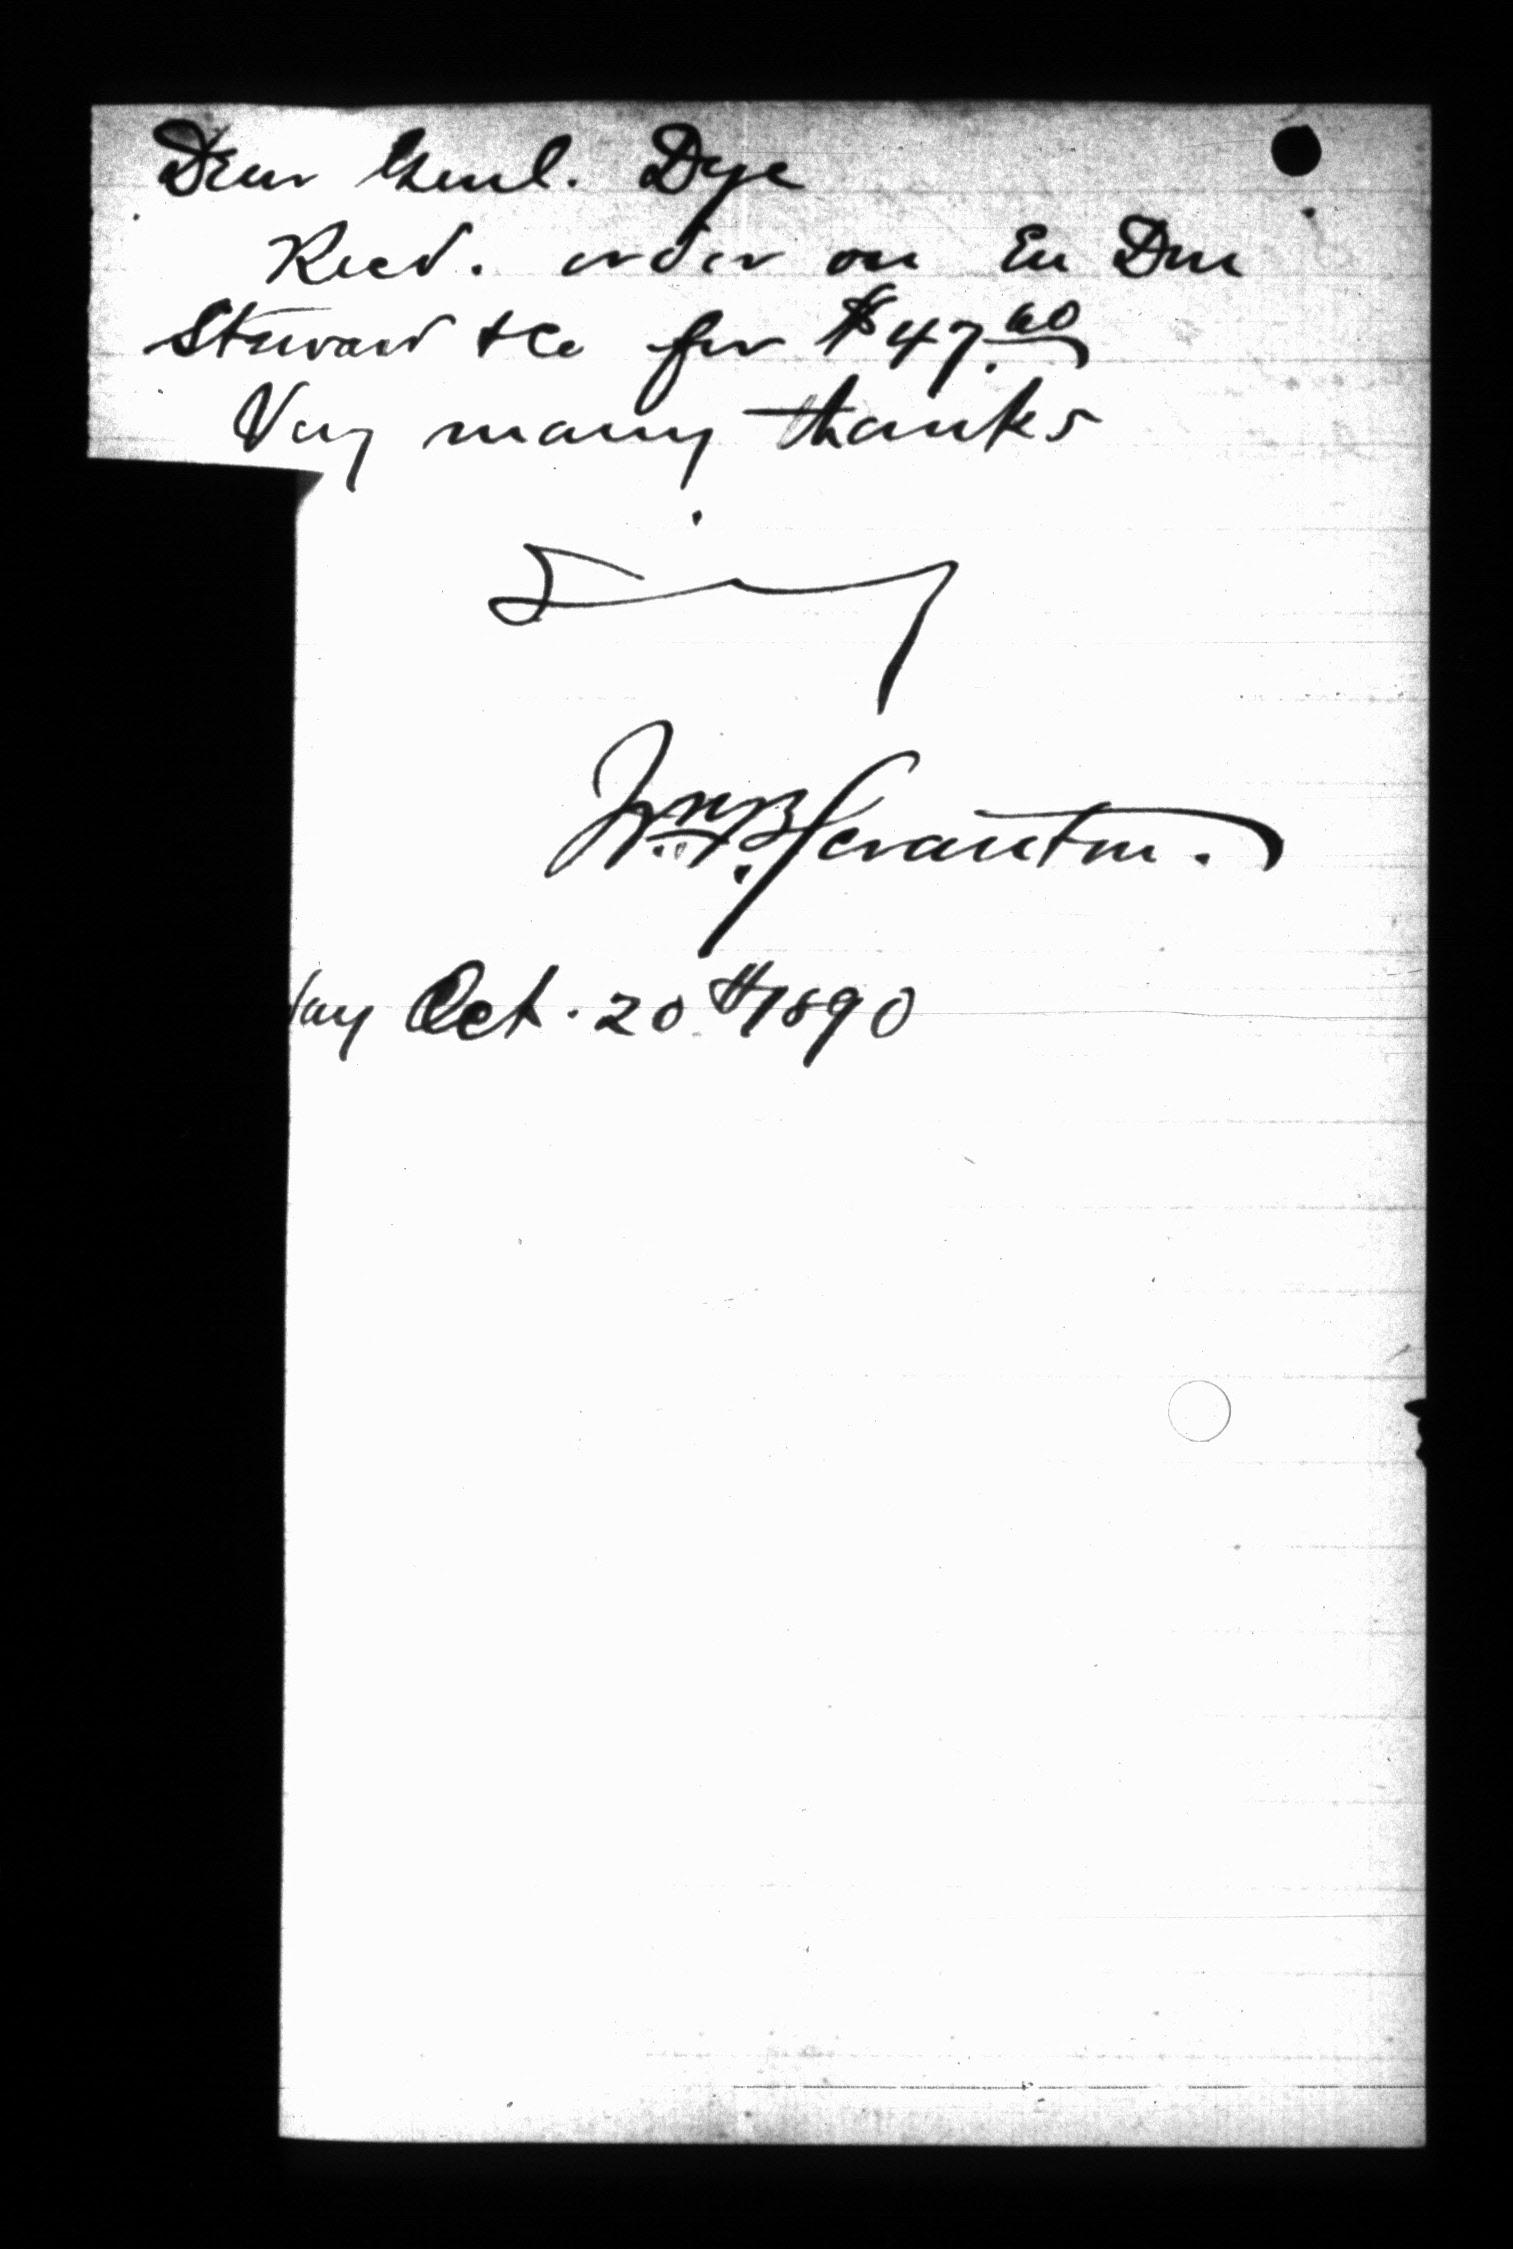 Dear Genl. Dye
Recd. order on En Don
Steward & Co for $47.60
Very many thanks
Sincerely
Wm. B. Scranton.
day Oct. 20th 1890